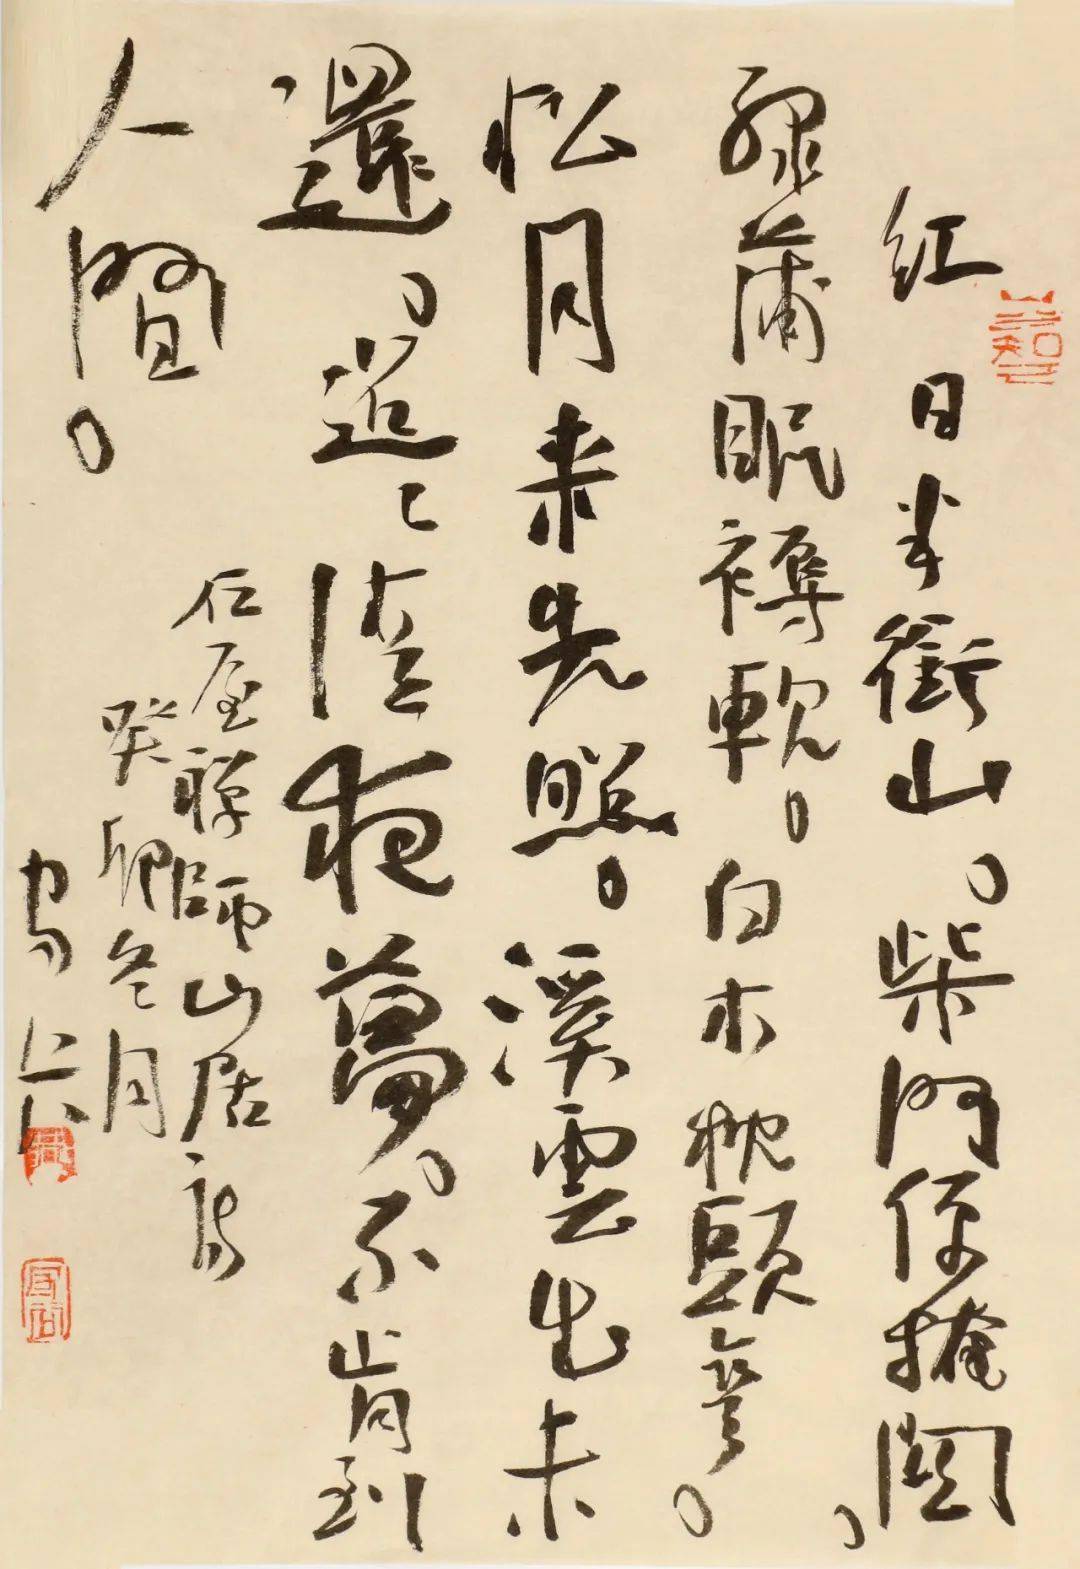 紅日半銜山。柴門便掩關。
綠蒲眠褥軟。白木枕頭彎。
松月来先照。溪雲出未
還。迢〻清夜夢。不肯到
人間。
石屋禪師山居詩
癸卯冬月